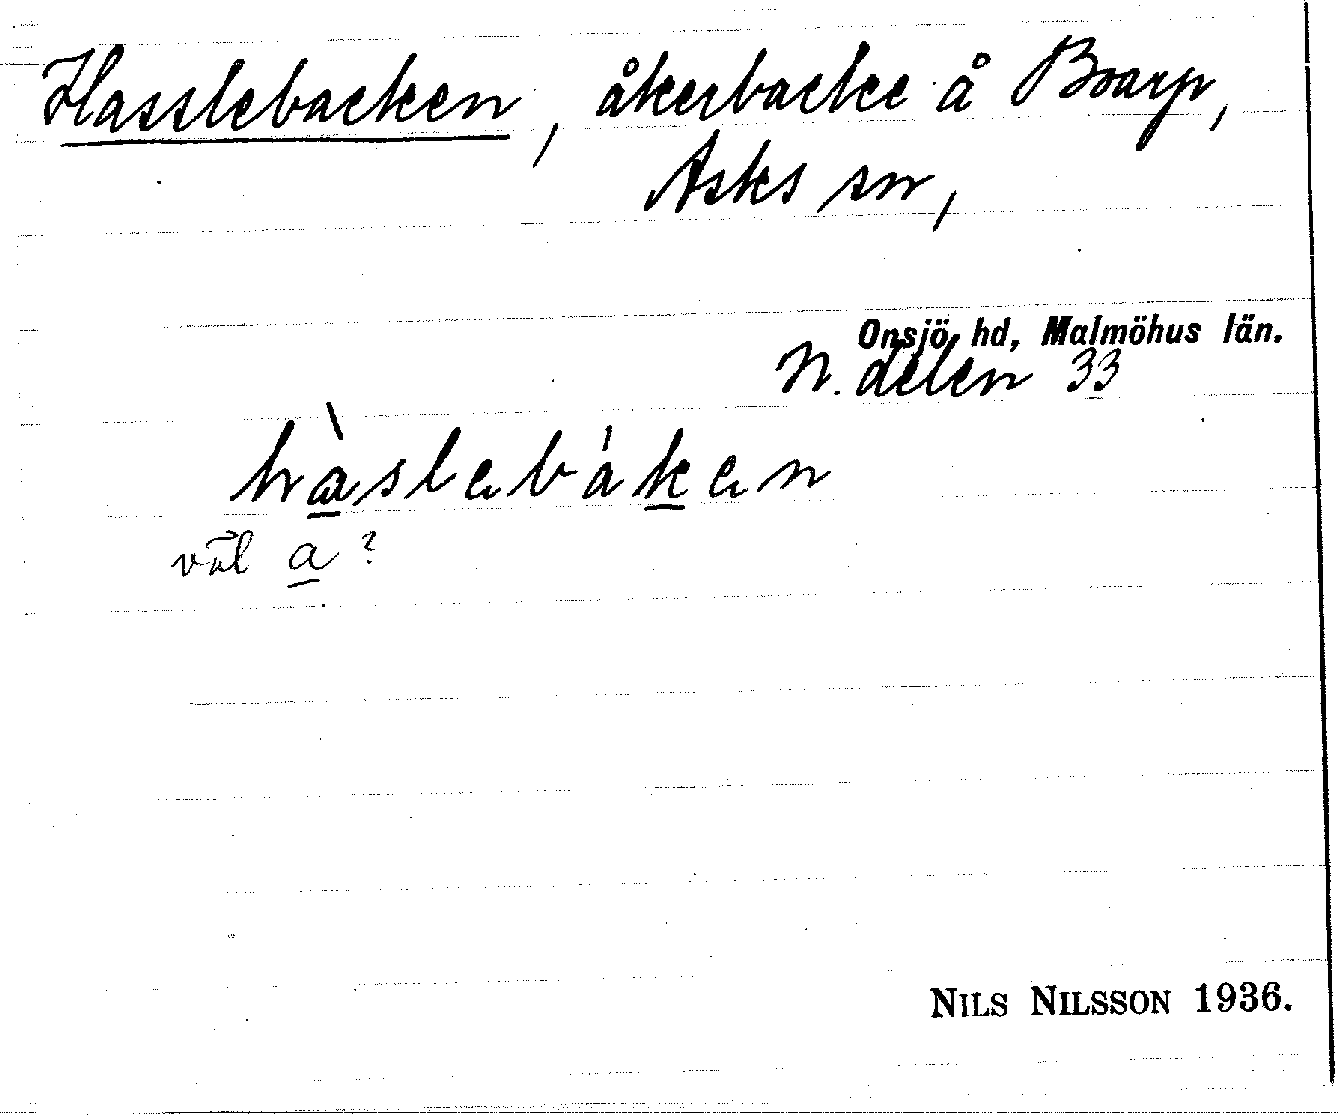 Hasslebacken, åkerbacke å Boarp,
Asks sn,
Onsjö hd, Malmöhus län.
N. delen 33
hàslebáken
väl a?
NILS NILSSON 1936.